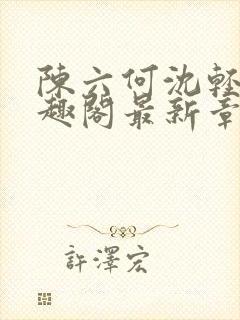 陳六何沈輕
趣閣最新章
許澤宏